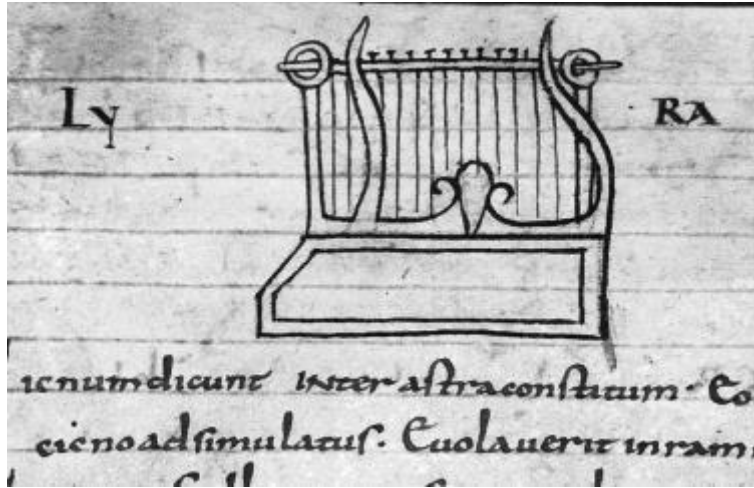 LY RA
icnum dicunt inter astra constitum · Eo
cicno adsimulatus · Euolauerit inram